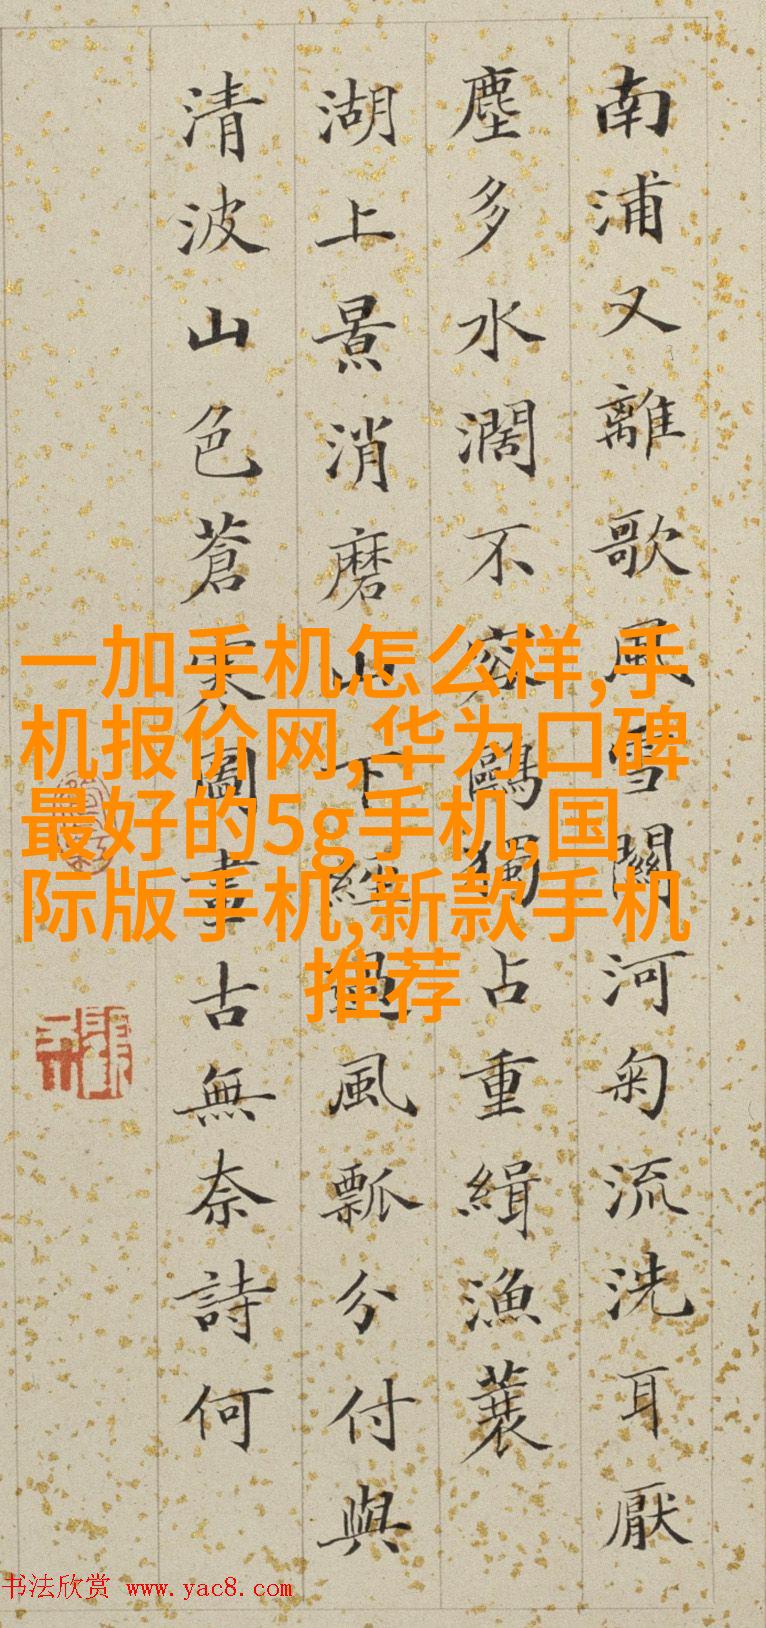 南浦又離歌風雪關河匊流洗耳厭
塵多水濶不容鷗獨占重緝漁蓑
湖上景消磨山下經過風瓢分付與
清波山色蒼寒圖畫古無奈詩何
一加手机怎么样,手
机报价网,华为口碑
最好的5g手机,国
际版手机,新款手机
推荐
书法欣赏 www.yac8.com